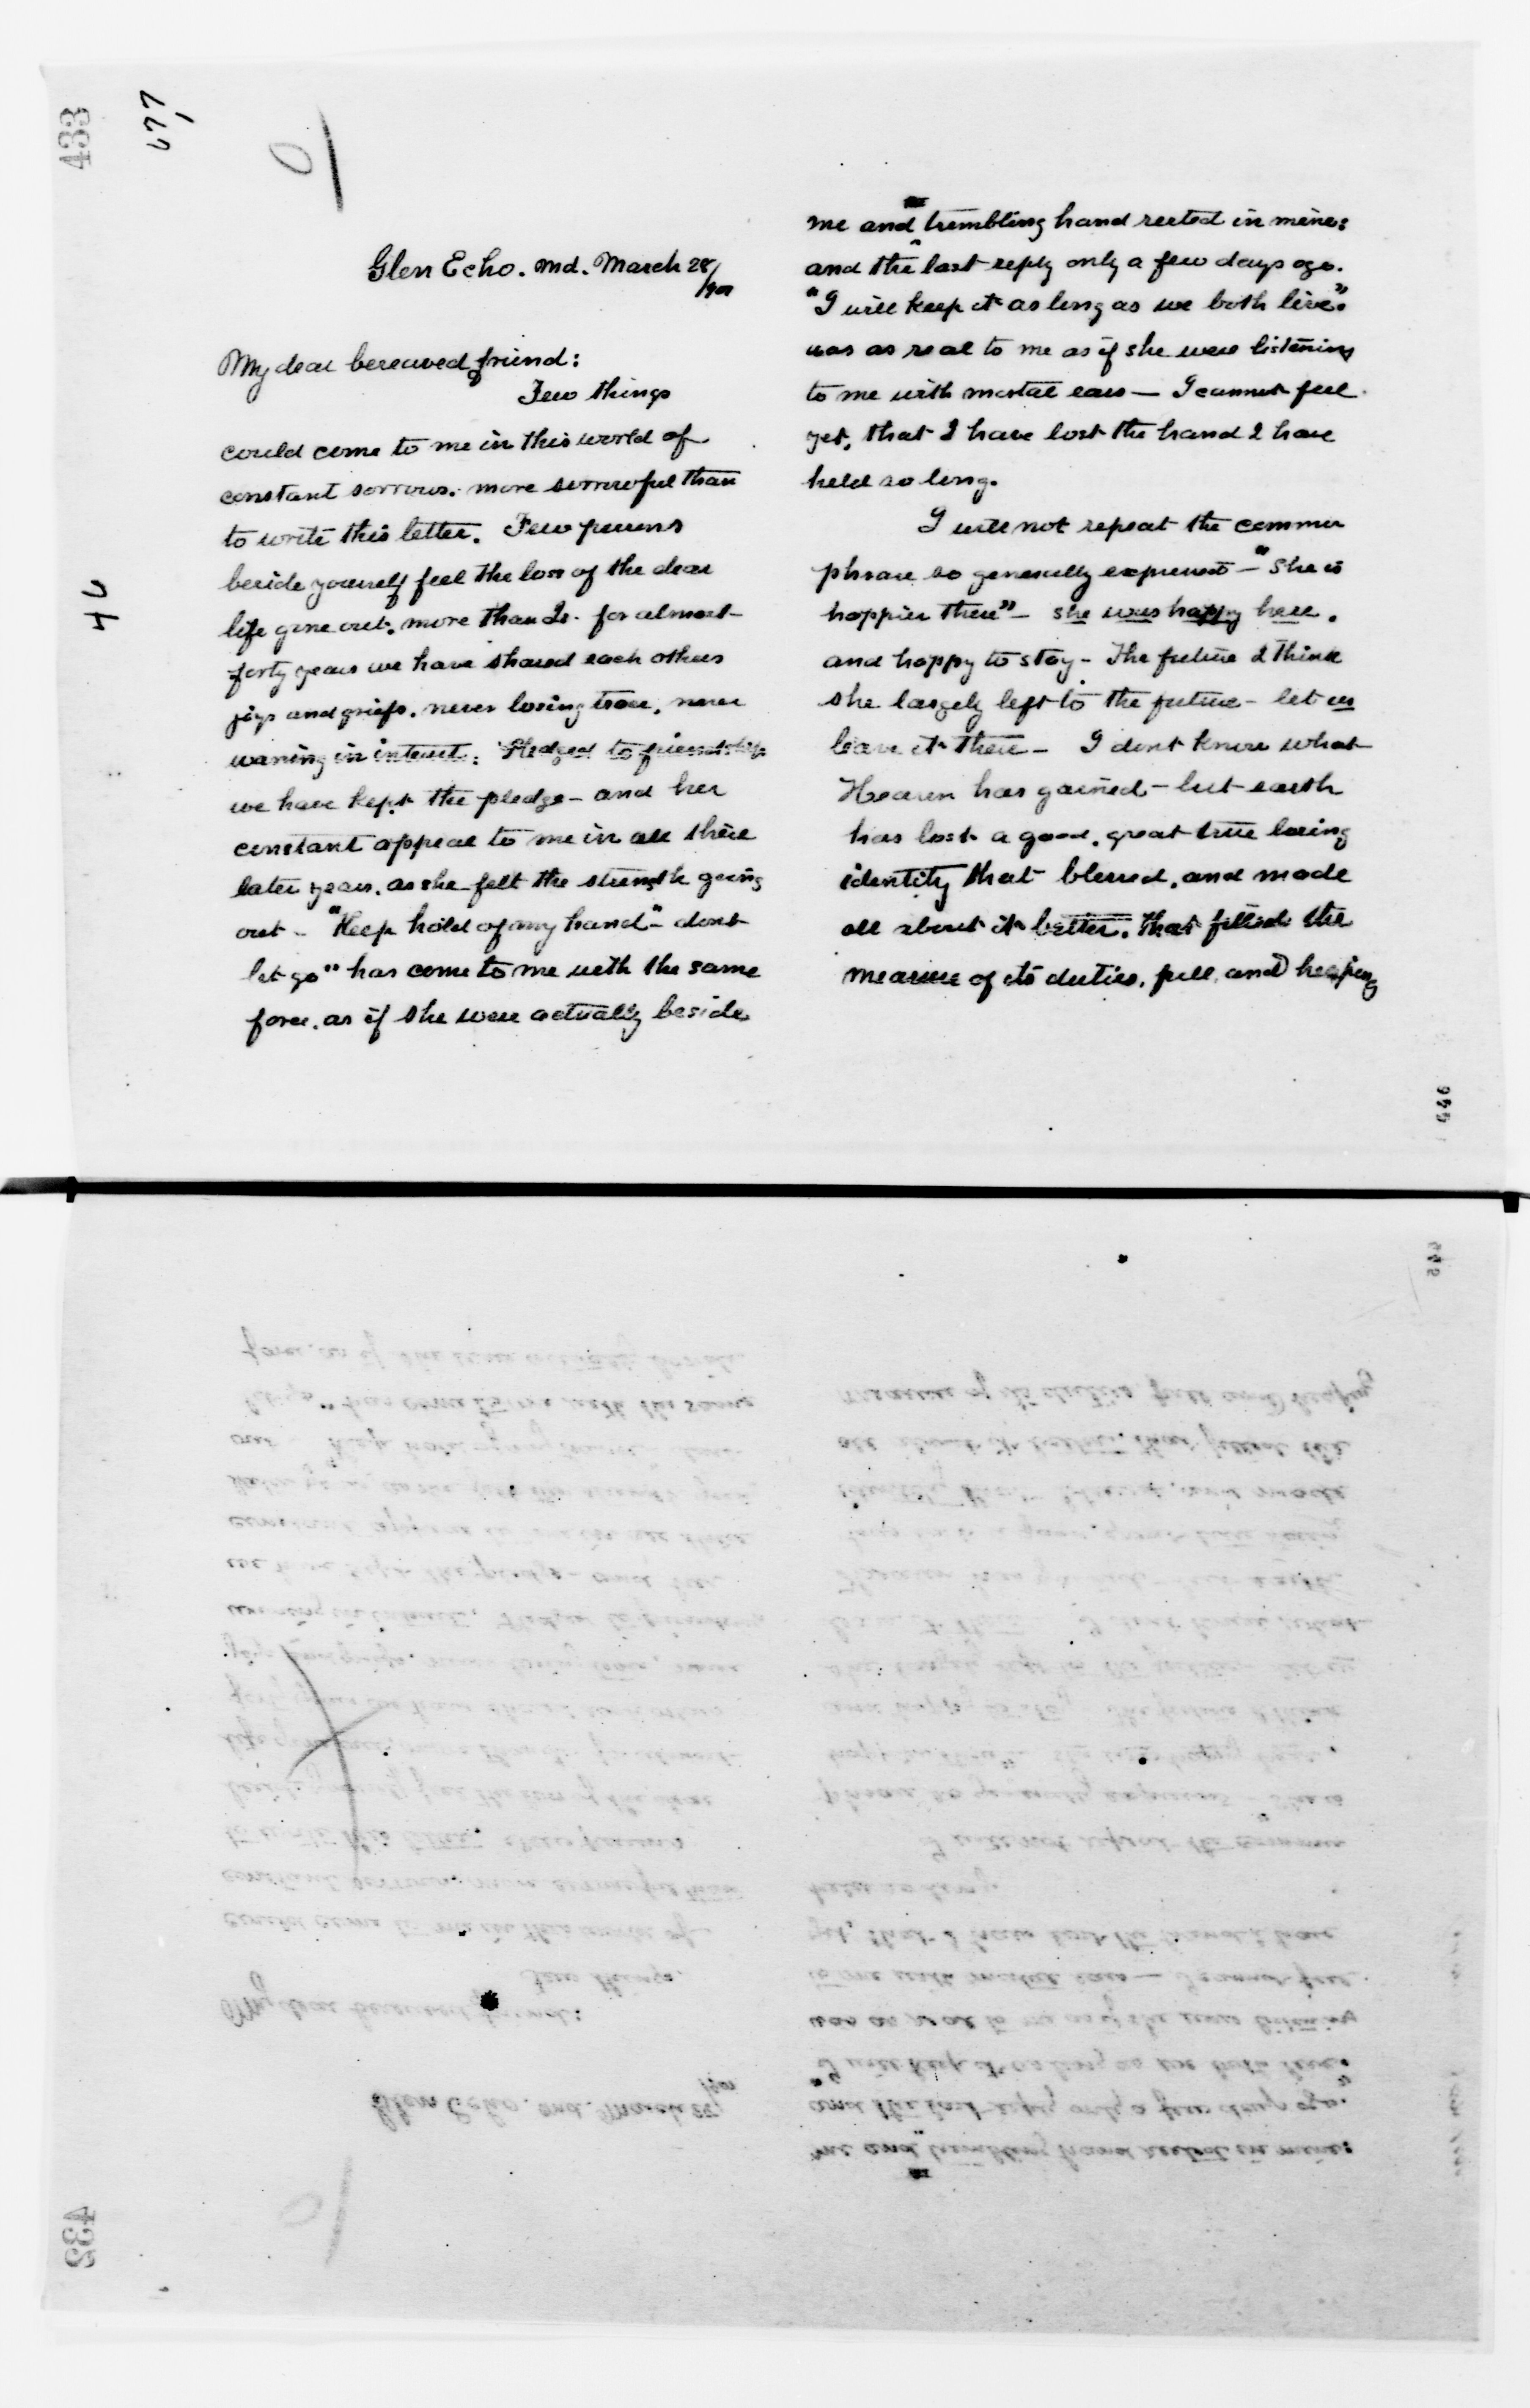 433
677
Glen Echo. Md. March 28/
My dear bereaved friend:
Few things
could come to me in this world of
constant sorrows. more sorrowful than
to write this letter. Few persons
beside yourself feel the loss of the dear
life gone out. more than I. for almost
forty years we have shared each others
joys and griefs. never losing trace, never
waning in interest. Pledged to friendship
we have kept the pledge - and her
constant appeal to me in all these
later years. as she felt the strength going
out - "Keep hold of my hand" - dont
let go" has come to me with the same
force. as if she were actually beside
me and trembling hand rested in mine:
and the last reply only a few days ago.
"I will keep it as long as we both live".
was as real to me as if she were listening
to me with mortal ears — I cannot feel
yet, that I have lost the hand I have
held so long.
I will not repeat the common
phrase so generally expressed - "She is
happier there" - she was happy here.
and happy to stay - The future I think
she largely left to the future - let us
leave it there - I dont know what
Heaven has gained - but earth
has lost a good. great true loving
identity that blessed. and made
all about it better. that filled the
measure of its duties. full and heaping
446
432